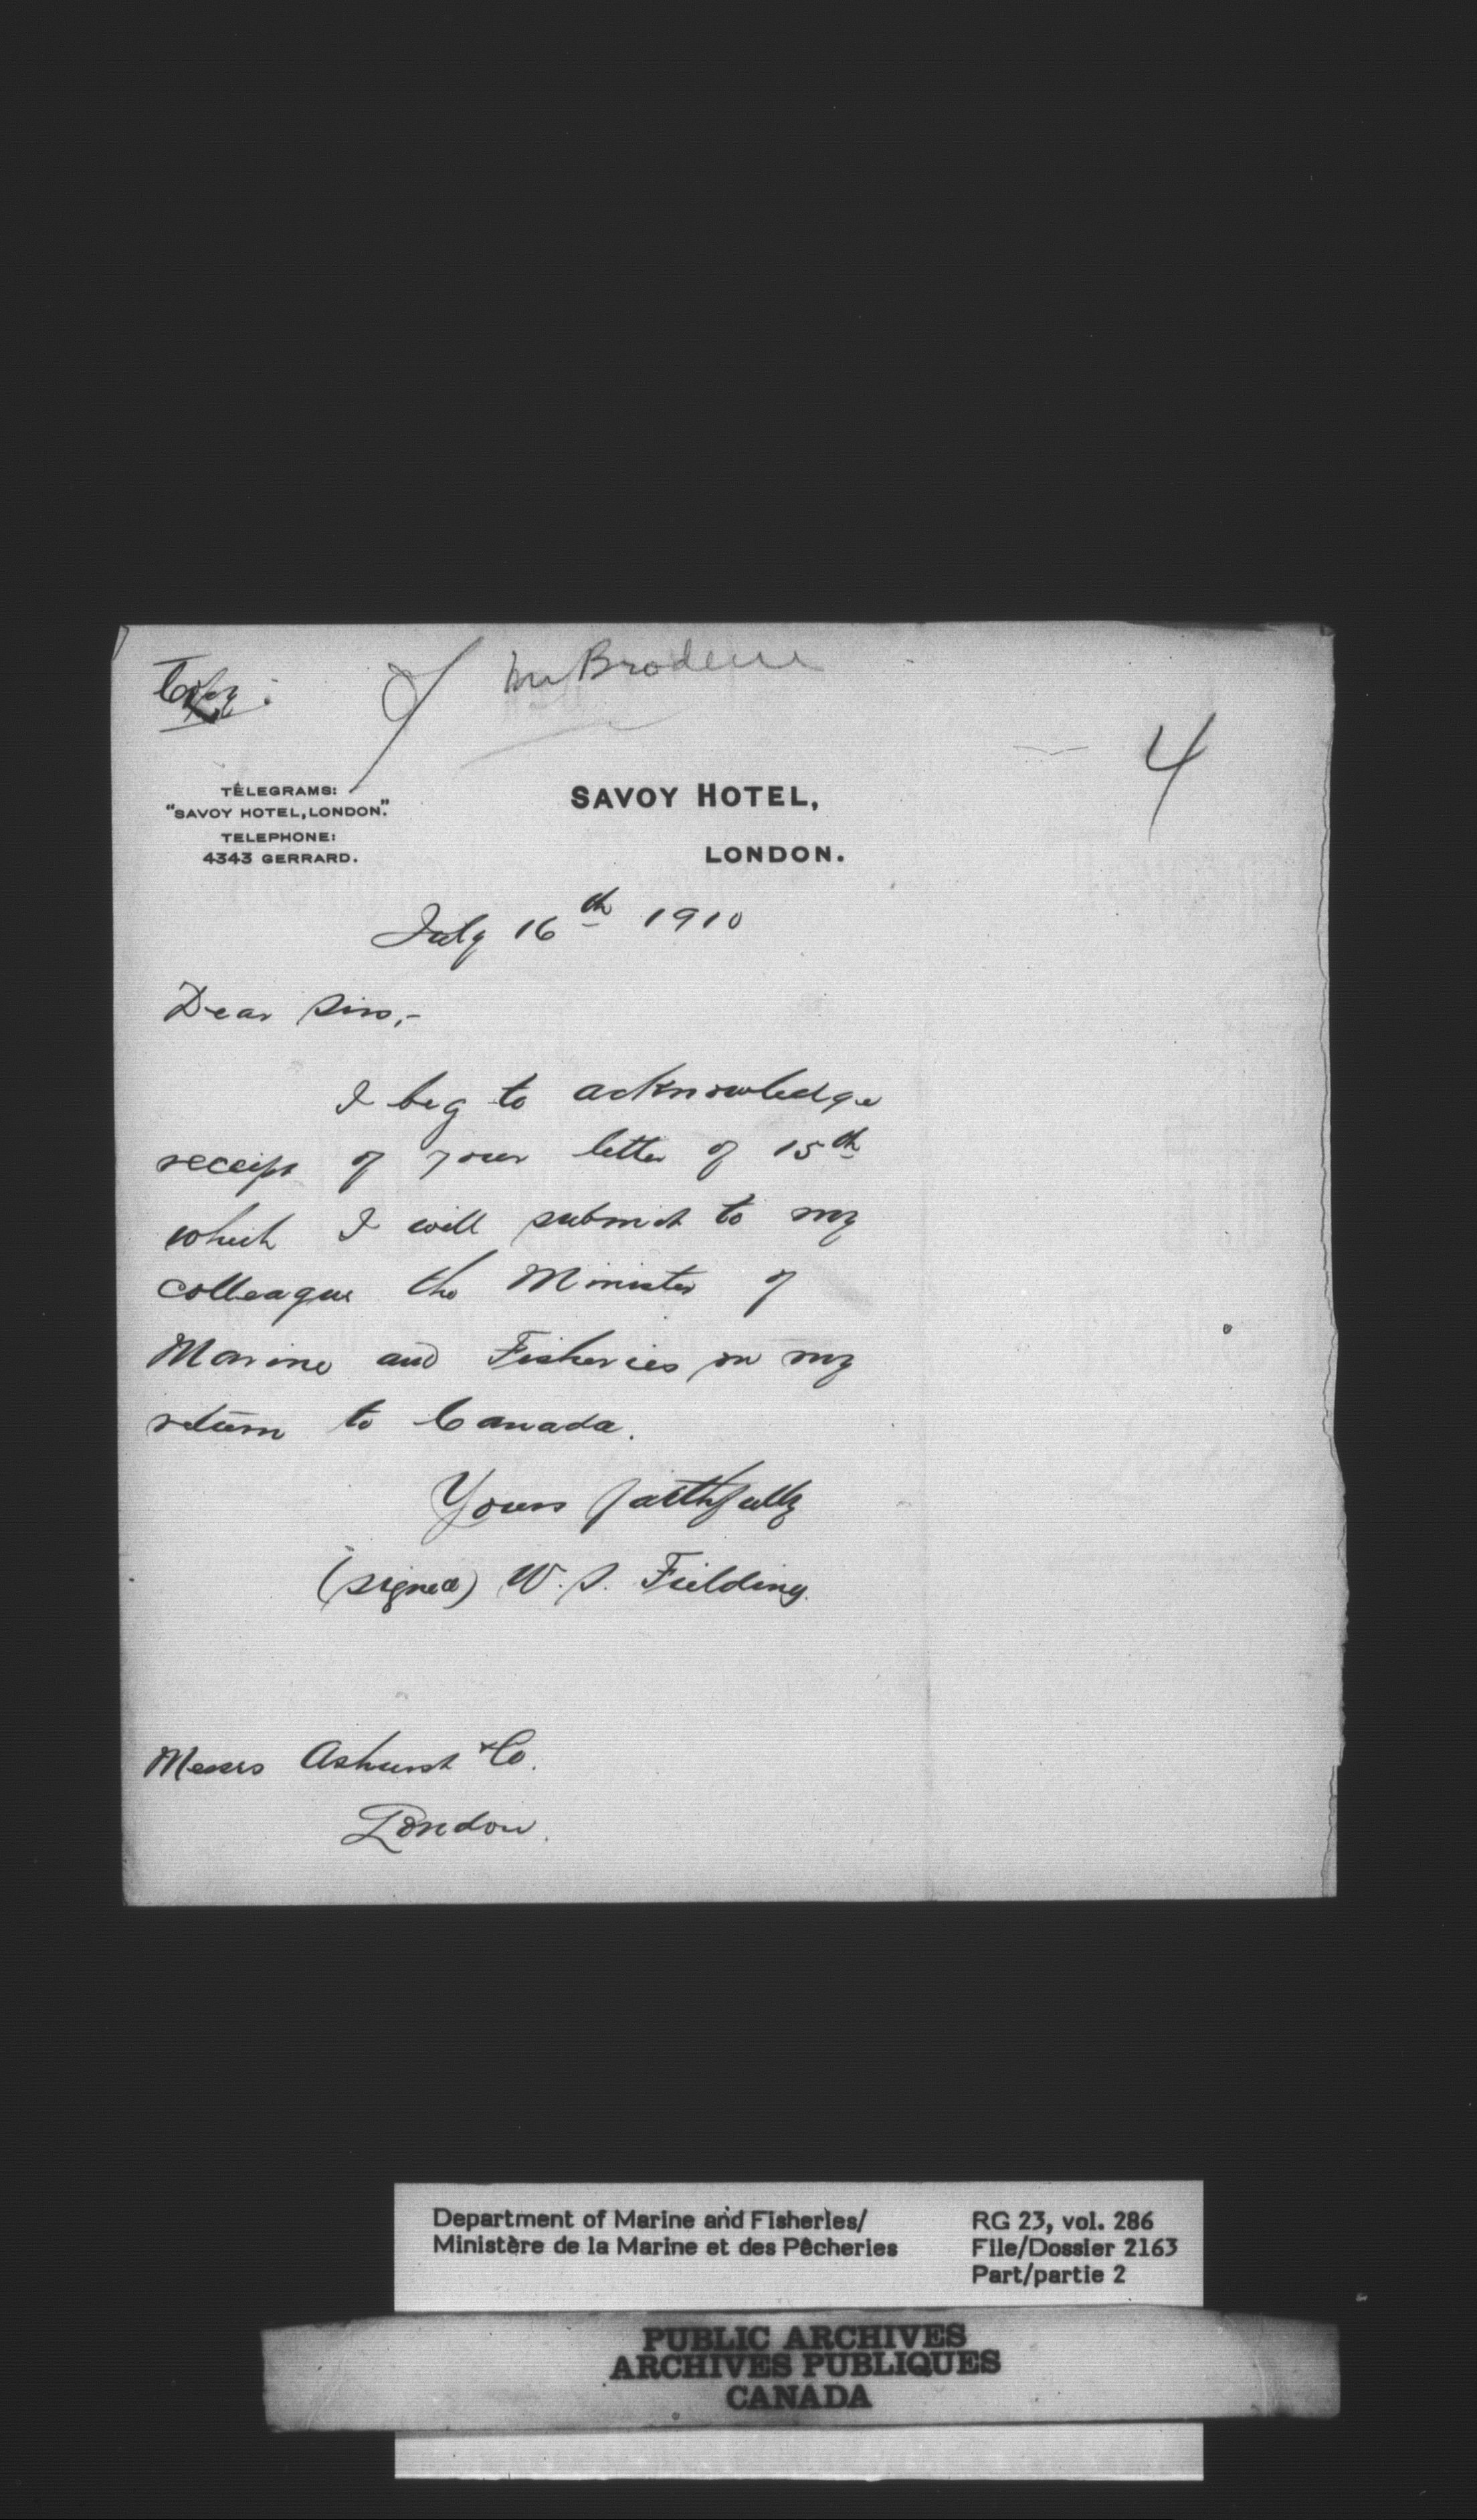 Copy.
Mr Brodeur
4
TELEGRAMS:
"SAVOY HOTEL, LONDON."
TELEPHONE:
4343 GERRARD.
SAVOY HOTEL,
LONDON.
July 16th 1910
Dear Sirs,-
I beg to acknowledge
receipt of your letter of 15th
which I will submit to my
colleague the Minister of
Marine and Fisheries on my
return to Canada.
Yours faithfully
(signed) W. S. Fielding.
Messrs Ashurst & Co.
London.
Department of Marine and Fisheries/
Ministère de la Marine et des Pêcheries
RG 23, vol. 286
File/Dossier 2163
Part/partie 2
PUBLIC ARCHIVES
ARCHIVES PUBLIQUES
CANADA